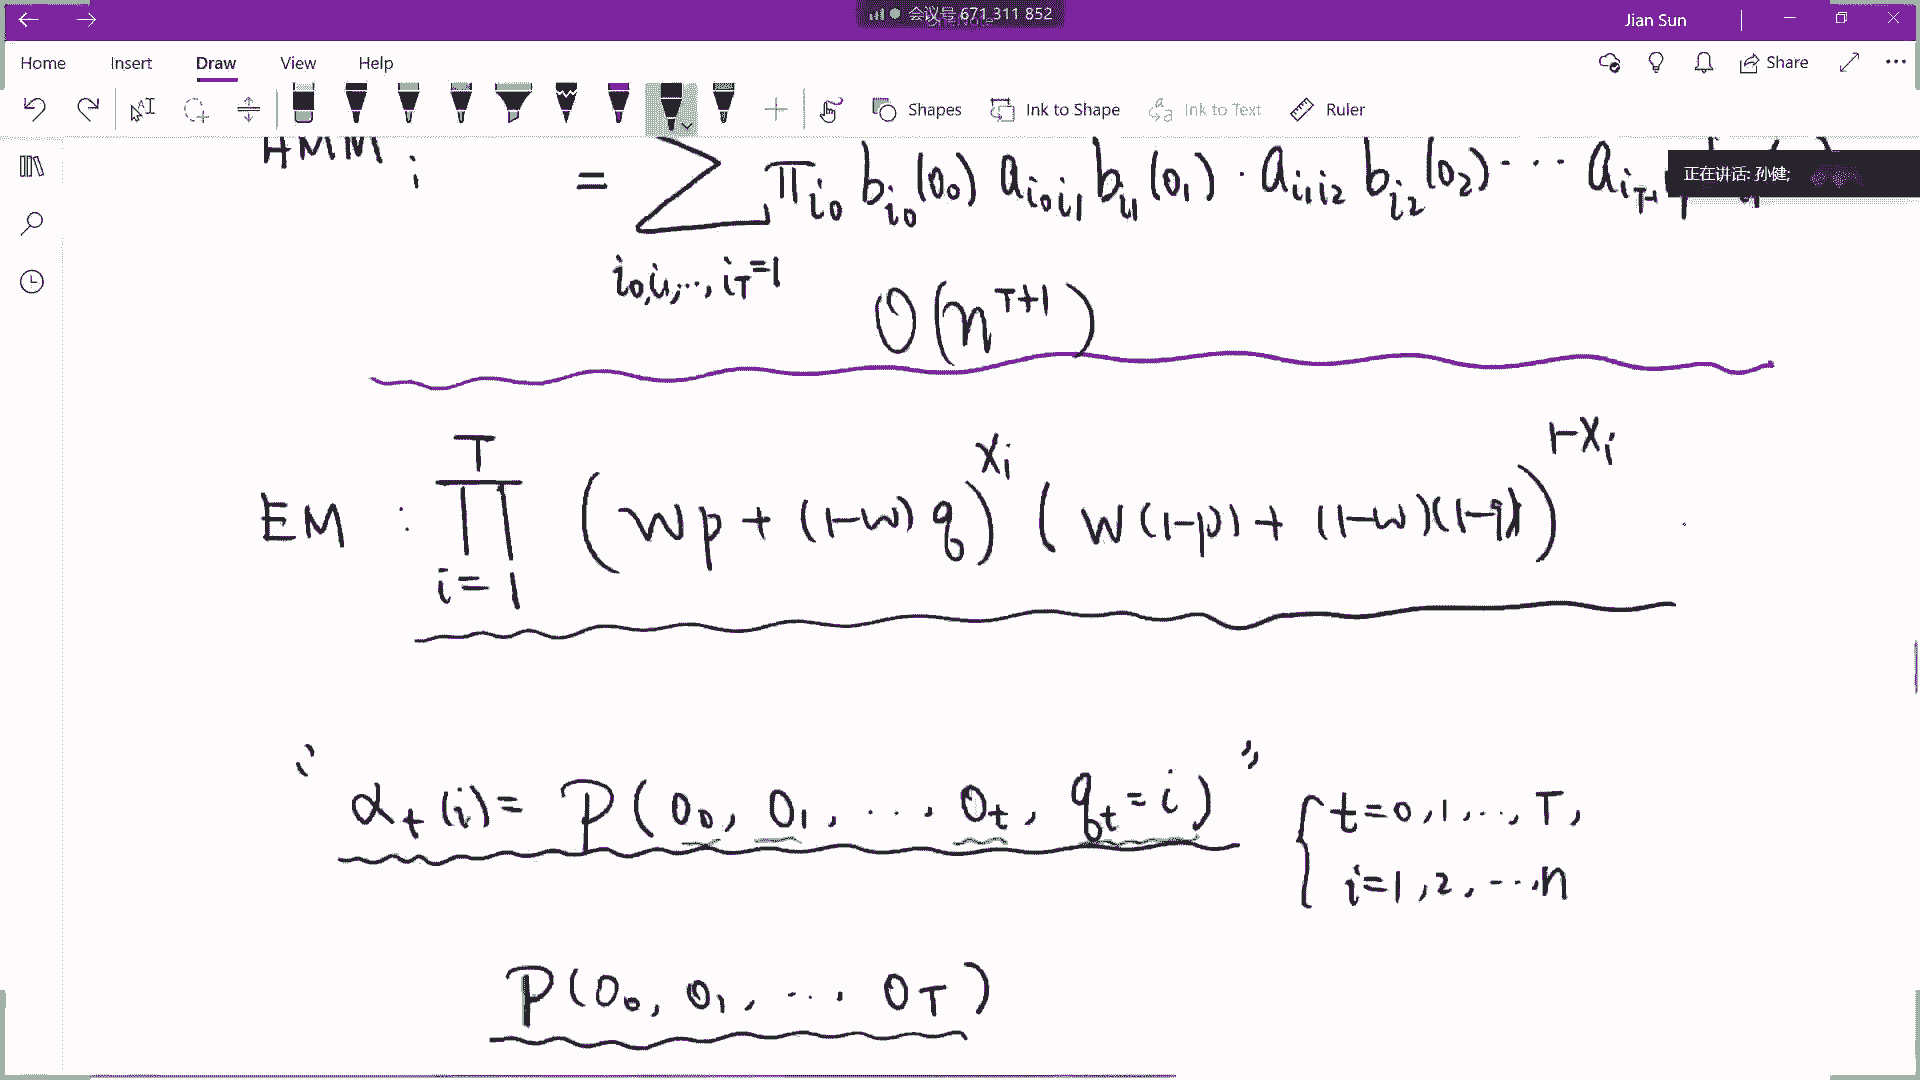 会议号 671 311 852
Jian Sun
Home Insert Draw View Help Share
Shapes Ink to Shape Ink to Text Ruler
正在讲话: 孙健;
HMM i = ∑ π_{i_0} b_{i_0}(o_0) a_{i_0 i_1} b_{i_1}(o_1) · a_{i_1 i_2} b_{i_2}(o_2) ··· a_{i_{T-1}
i_0, i_1, ..., i_T = 1
O(n^{T+1})
EM : ∏_{i=1}^{T} (wp + (1-w)q)^{x_i} (w(1-p) + (1-w)(1-q))^{1-x_i}
“ α_t(i) = P(o_0, o_1, ..., o_t, q_t = i) ” { t = 0, 1, ..., T,
i = 1, 2, ..., n
P(o_0, o_1, ..., o_T)